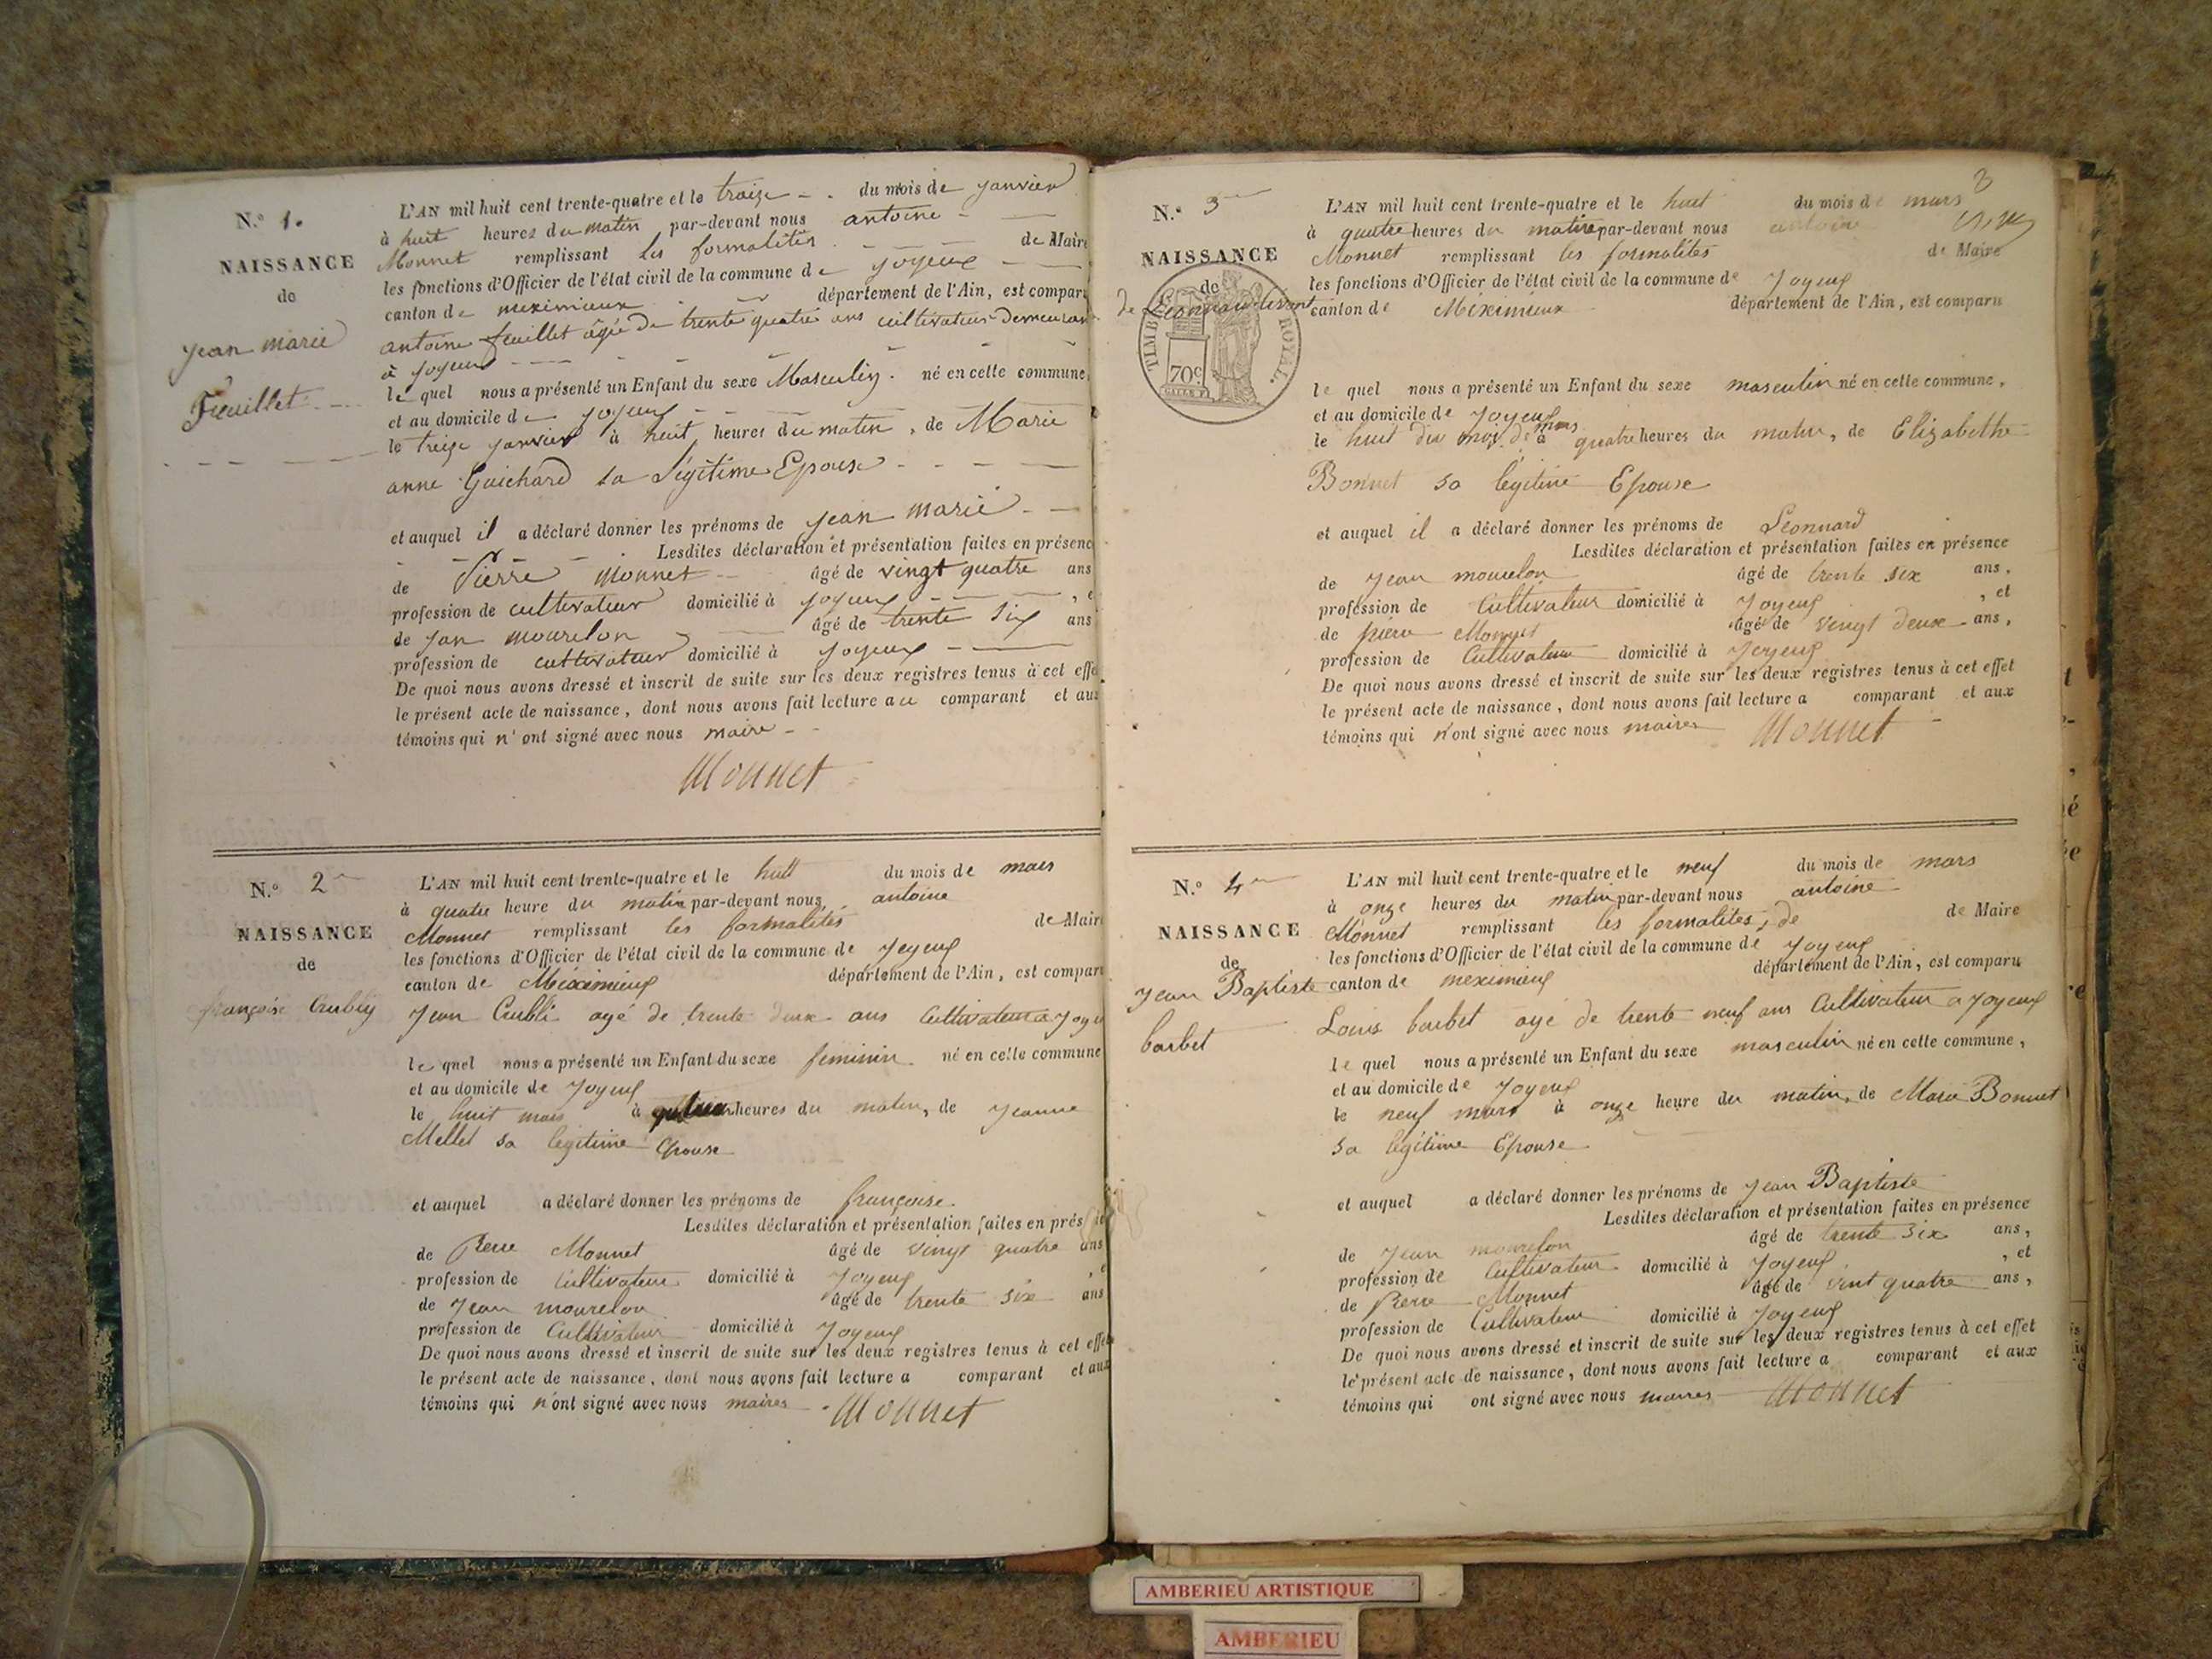 N.º 1.
NAISSANCE
de
jean marie
Feuillet
L'AN mil huit cent trente-quatre et le treize du mois de janvier
à huit heures du matin par-devant nous antoine
Monnet remplissant les formalités de Maire
les fonctions d'Officier de l'état civil de la commune de joyeux
canton de meximieux département de l'Ain, est comparu
antoine feuillet âgé de trente quatre ans cultivateur demeurant
à joyeux
le quel nous a présenté un Enfant du sexe Masculin. né en cette commune,
et au domicile de joyeux
le treize janvier à huit heures du matin, de Marie
anne Guichard sa Légitime Epouse
et auquel il a déclaré donner les prénoms de jean marie
Lesdites déclaration et présentation faites en présenc
de Pierre Monnet âgé de vingt quatre ans
profession de cultivateur domicilié à joyeux , e
de jan mourelon âgé de trente six ans
profession de cultivateur domicilié à joyeux
De quoi nous avons dressé et inscrit de suite sur les deux registres tenus à cet effe
le présent acte de naissance, dont nous avons fait lecture au comparant et aux
témoins qui n'ont signé avec nous maire
Monnet
N.º 2
NAISSANCE
de
françoise Crubly
L'AN mil huit cent trente-quatre et le huit du mois de mars
à quatre heure du matin par-devant nous antoine
Monnet remplissant les formalités de Maire
les fonctions d'Officier de l'état civil de la commune de Joyeux
canton de Méximieux département de l'Ain, est compar
Jean Crubli agé de trente deux ans Cultivateur a Joye
le quel nous a présenté un Enfant du sexe feminin né en cette commune
et au domicile de Joyeux
le huit mars à heures du matin, de Jeanne
Mellet sa legitime Epouse
et auquel a déclaré donner les prénoms de françoise
Lesdites déclaration et présentation faites en prés
de Pierre Monnet âgé de vingt quatre ans
profession de Cultivateur domicilié à Joyeux , e
de Jean mourelon âgé de trente six ans
profession de Cultivateur domicilié à Joyeux
De quoi nous avons dressé et inscrit de suite sur les deux registres tenus à cet effet
le présent acte de naissance, dont nous avons fait lecture a comparant et aux
témoins qui n'ont signé avec nous maires Monnet
3
N.º 3
NAISSANCE
de
de Léonnard
TIMBRE ROYAL.
70c
L'AN mil huit cent trente-quatre et le huit du mois de mars
à quatre heures du matin par-devant nous antoine
Monnet remplissant les formalités de Maire
les fonctions d'Officier de l'état civil de la commune de Joyeux
canton de Méximieux département de l'Ain, est comparu
le quel nous a présenté un Enfant du sexe masculin né en cette commune,
et au domicile de Joyeux
le huit du mois de mars à quatre heures du matin, de Elizabethe
Bonnet sa légitime Epouse
et auquel il a déclaré donner les prénoms de Léonnard
Lesdites déclaration et présentation faites en présence
de Jean mourelon âgé de trente six ans,
profession de Cultivateur domicilié à Joyeux , et
de pierre Monnet âgé de vingt deux ans,
profession de Cultivateur domicilié à Joyeux
De quoi nous avons dressé et inscrit de suite sur les deux registres tenus à cet effet
le présent acte de naissance, dont nous avons fait lecture a comparant et aux
témoins qui n'ont signé avec nous maires Monnet
N.º 4
NAISSANCE
de
Jean Baptiste
barbet
L'AN mil huit cent trente-quatre et le neuf du mois de mars
à onze heures du matin par-devant nous antoine
Monnet remplissant les formalités, de de Maire
les fonctions d'Officier de l'état civil de la commune de Joyeux
canton de meximieux département de l'Ain, est comparu
Louis barbet agé de trente neuf ans Cultivateur a Joyeux
le quel nous a présenté un Enfant du sexe masculin né en cette commune,
et au domicile de Joyeux
le neuf mars à onze heure du matin, de Marie Bonnet
sa légitime Epouse
et auquel a déclaré donner les prénoms de Jean Baptiste
Lesdites déclaration et présentation faites en présence
de Jean mourelon âgé de trente six ans,
profession de Cultivateur domicilié à Joyeux , et
de Pierre Monnet âgé de vint quatre ans,
profession de Cultivateur domicilié à Joyeux
De quoi nous avons dressé et inscrit de suite sur les deux registres tenus à cet effet
le présent acte de naissance, dont nous avons fait lecture a comparant et aux
témoins qui ont signé avec nous maires Monnet
AMBERIEU ARTISTIQUE
AMBERIEU